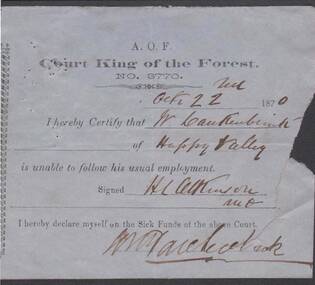 A. O. F.
Court King of the Forest.
NO. 3770.
Octr 22nd 1870
I hereby Certify that W Lankenbrink
of Happy Valley
is unable to follow his usual employment.
Signed H L Atkinson
MD
I hereby declare myself on the Sick Funds of the above Court.